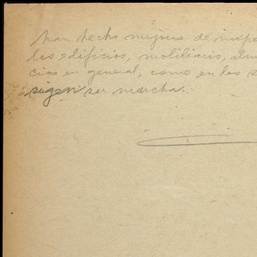 han hecho mejoras de
los edificios, moliliario,
cias en general, como en los
sigen su marcha.